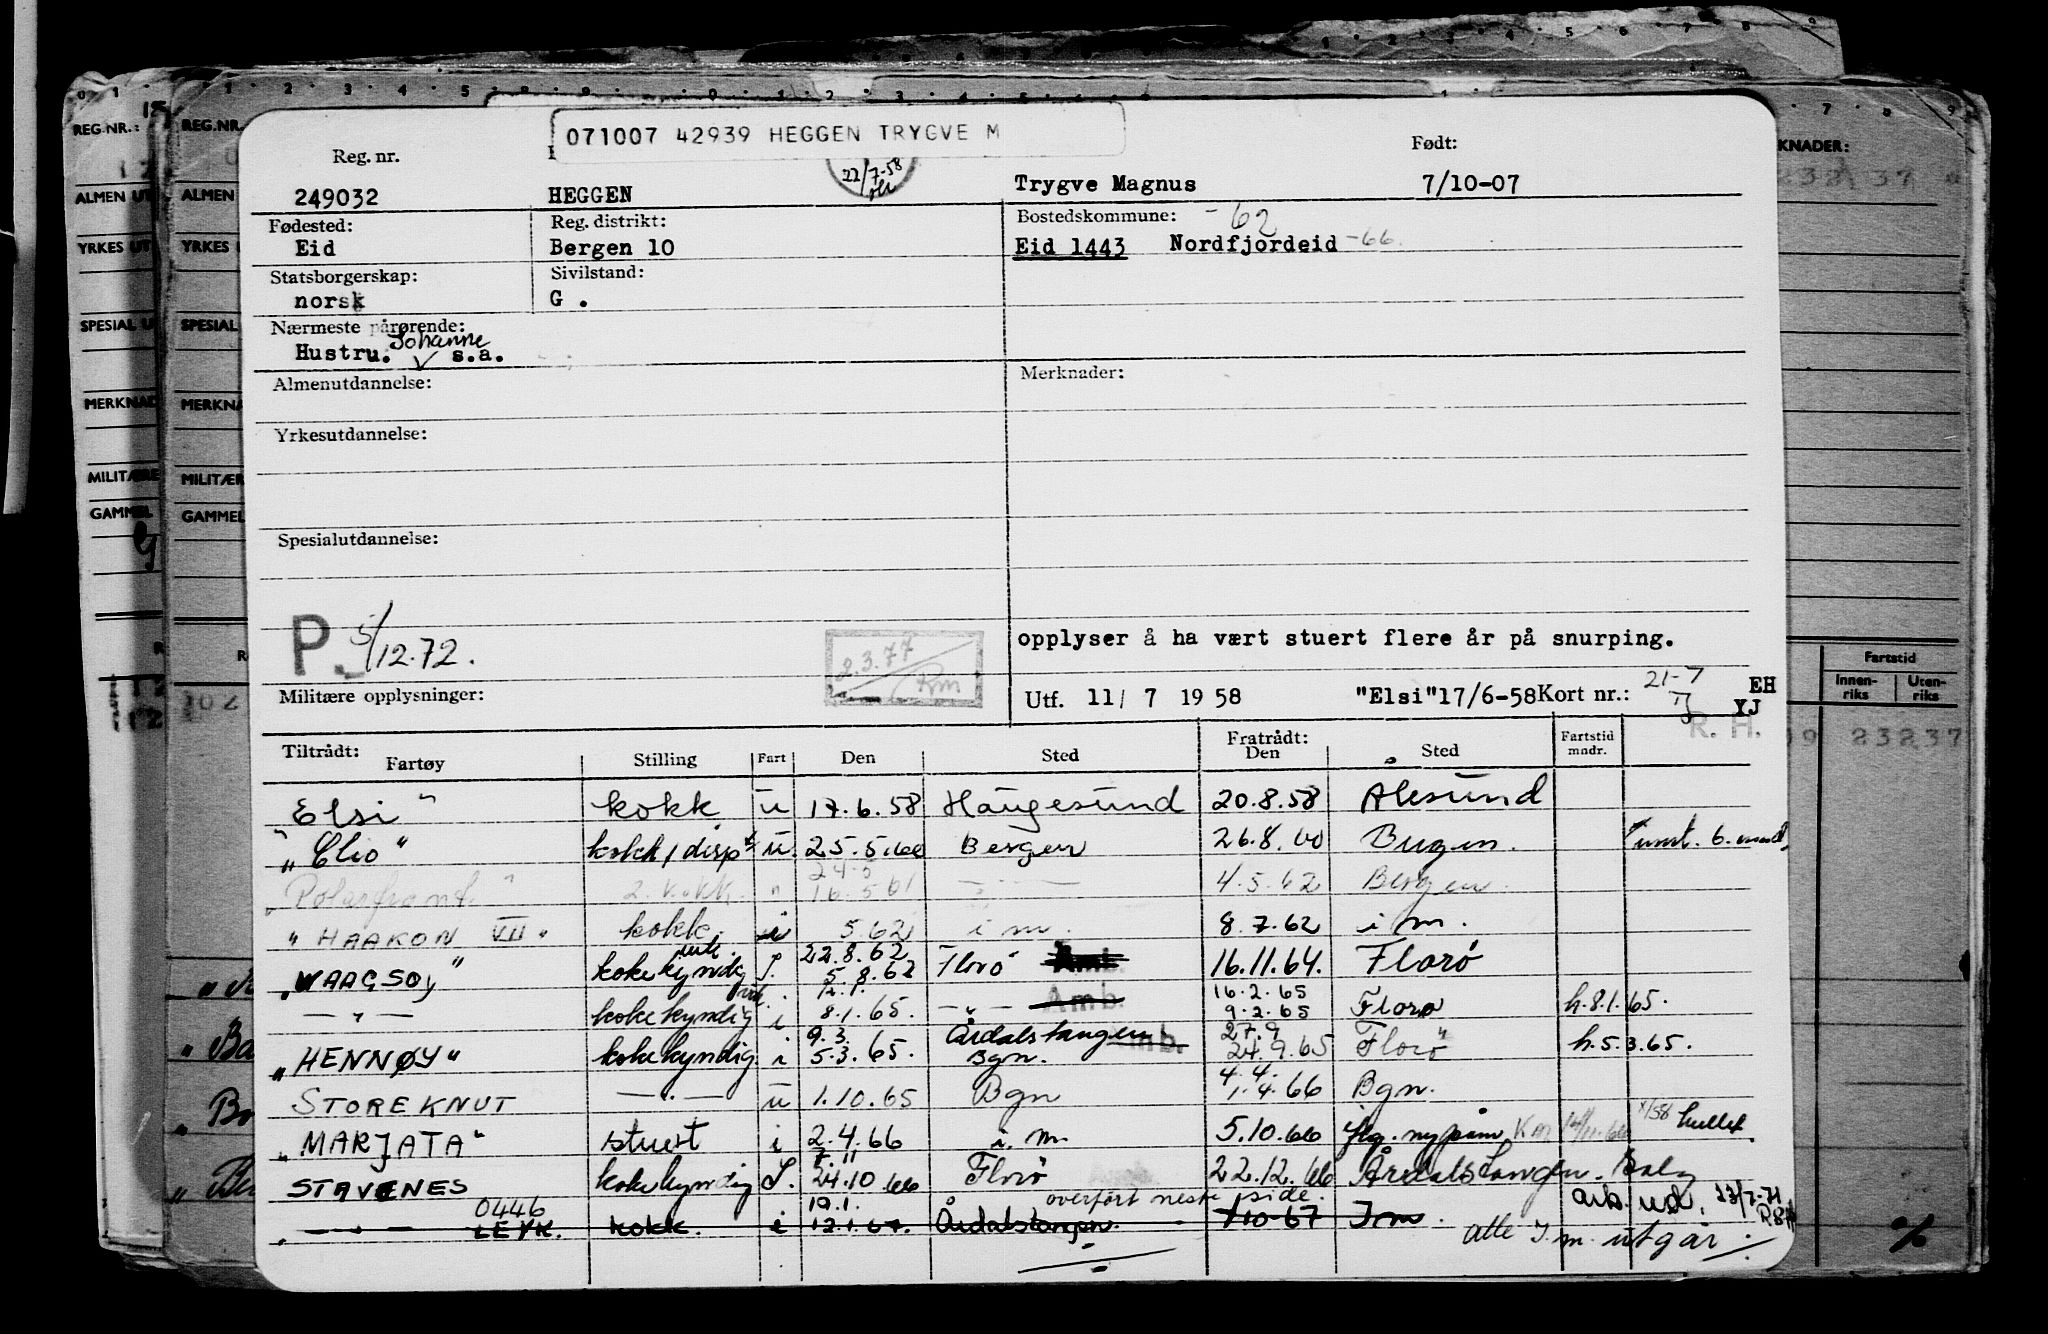 071007 42939 HEGGEN TRYGVE M
Reg. nr. Født:
22/7-58
249032 HEGGEN Trygve Magnus 7/10-07
Fødested: Reg. distrikt: Bostedskommune: -62
Eid Bergen 10 Eid 1443 Nordfjordeid -66.
Statsborgerskap: Sivilstand:
norsk G .
Nærmeste pårørende:
Hustru. Johanne s.a.
Almenutdannelse: Merknader:
Yrkesutdannelse:
Spesialutdannelse:
P. 5/12.72.
2.3.77
opplyser å ha vært stuert flere år på snurping.
Militære opplysninger: Utf. 11/ 7 19 58 "Elsi"17/6-58 Kort nr.: 21-7 EH
YJ
R. H.
Tiltrådt: Fartøy Stilling Fart Den Sted Fratrådt: Den Sted Fartstid mndr.
Elsi" kokk u 17.6.58 Haugesund 20.8.58 Ålesund
"Clio" kokk/disp u. 25.5.60 Bergen 26.8.60 6.
24.5
2. kokk " 16.5.61 — " — 4.5.62 Bergen.
"HAAKON VII" kokk. i 5.62 i m. 8.7.62 i m.
22.8.62
"WAAGSØY" kokekyndig S. 5.8.62 Florø Amb. 16.11.64. Florø
12.1. 16.2.65
— " — kokekyndig i 8.1.65. — " — Amb. 9.2.65 Florø h.8.1.65.
9.3. Årdalstangen 27.9
"HENNØY" kokekyndig i 5.3.65. Bgn. 24.9.65 Florø h.5.3.65.
4.4.
STOREKNUT — " — u 1.10.65 Bgn 1.4.66 Bgn.
"MARJATA" stuert i 2.4.66 i. m. 5.10.66 hullet.
7.11
STAVENES kokekyndig S. 24.10.66 Florø 22.12.66 Årdalstangen.
0446 19.1. overført neste side. arb. ud. 23/7-71
— " — LEYK. kokk. i 12.1.67. Årdalstangen. 1.10-67 I m.
alle I. m. utgår
REG.NR.:
ALMEN UT
YRKES UT
SPESIAL U
MERKNAD
MILITÆRE
GAMMEL
REG.NR.
ALMEN
YRKES
SPESIAL
MERKNA
MILITÆR
GAMMEL
KNADER:
Fartstid
Innen-riks Uten-riks
23237